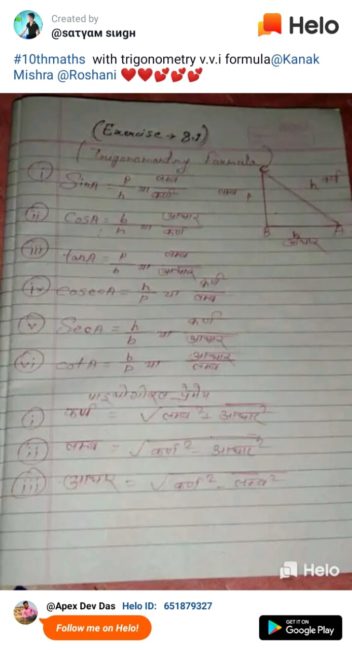 Created by
@sαтyαм sιиgн
Helo
#10thmaths with trigonometry v.v.i formula@Kanak
Mishra @Roshani ❤️❤️💕💕💕
(Exercise → 8.1)
(Trigonomantry Formula)
(i) SinA = p/h या लम्ब/कर्ण
(ii) CosA = b/h या आधार/कर्ण
(iii) tanA = या लम्ब/आधार
(iv) CosecA = h/p या कर्ण/लम्ब
(v) SecA = h/b या कर्ण/आधार
(vi) cotA = b/p या आधार/लम्ब
C
लम्ब p
h कर्ण
B
A
आधार
(i) कर्ण = √लम्ब² + आधार²
(ii) लम्ब = √कर्ण² - आधार²
(iii) आधार = √कर्ण² - लम्ब²
Helo
@Apex Dev Das Helo ID: 651879327
Follow me on Helo!
GET IT ON
Google Play